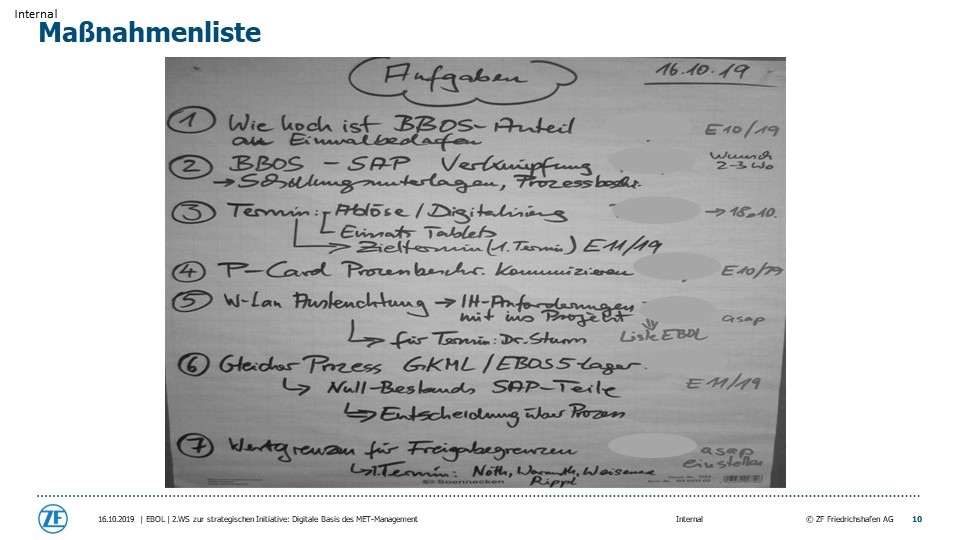 Internal
Maßnahmenliste
Aufgaben
16.10.19
1 Wie hoch ist BBOS-Anteil E10/19
an Einmalbedarfen
2 BBOS - SAP Verknüpfung Wunsch
2-3 Wo
→ Schulungsunterlagen, Prozessbeschr.
3 Termin: Ablöse / Digitalisierung → 18.10.
Einsatz Tablets
→ Zieltermin (1. Termin) E11/19
4 P-Card Prozessbeschr. kommunizieren E10/19
5 W-Lan Ausleuchtung → IH-Anforderungen
mit ins Projekt asap
→ für Termin: Dr. Sturm Liste EBOL
6 Gleicher Prozess GKML / EBOS5-Lager.
→ Null-Bestands SAP-Teile E11/19
→ Entscheidung über Prozess
7 Wertgrenzen für Freigabegrenzen asap
einstellen
→ 1. Termin: Nöth, Warmuth,
Rippl
Soennecken
ZF
16.10.2019 | EBOL | 2.WS zur strategischen Initiative: Digitale Basis des MET-Management
Internal
© ZF Friedrichshafen AG
10